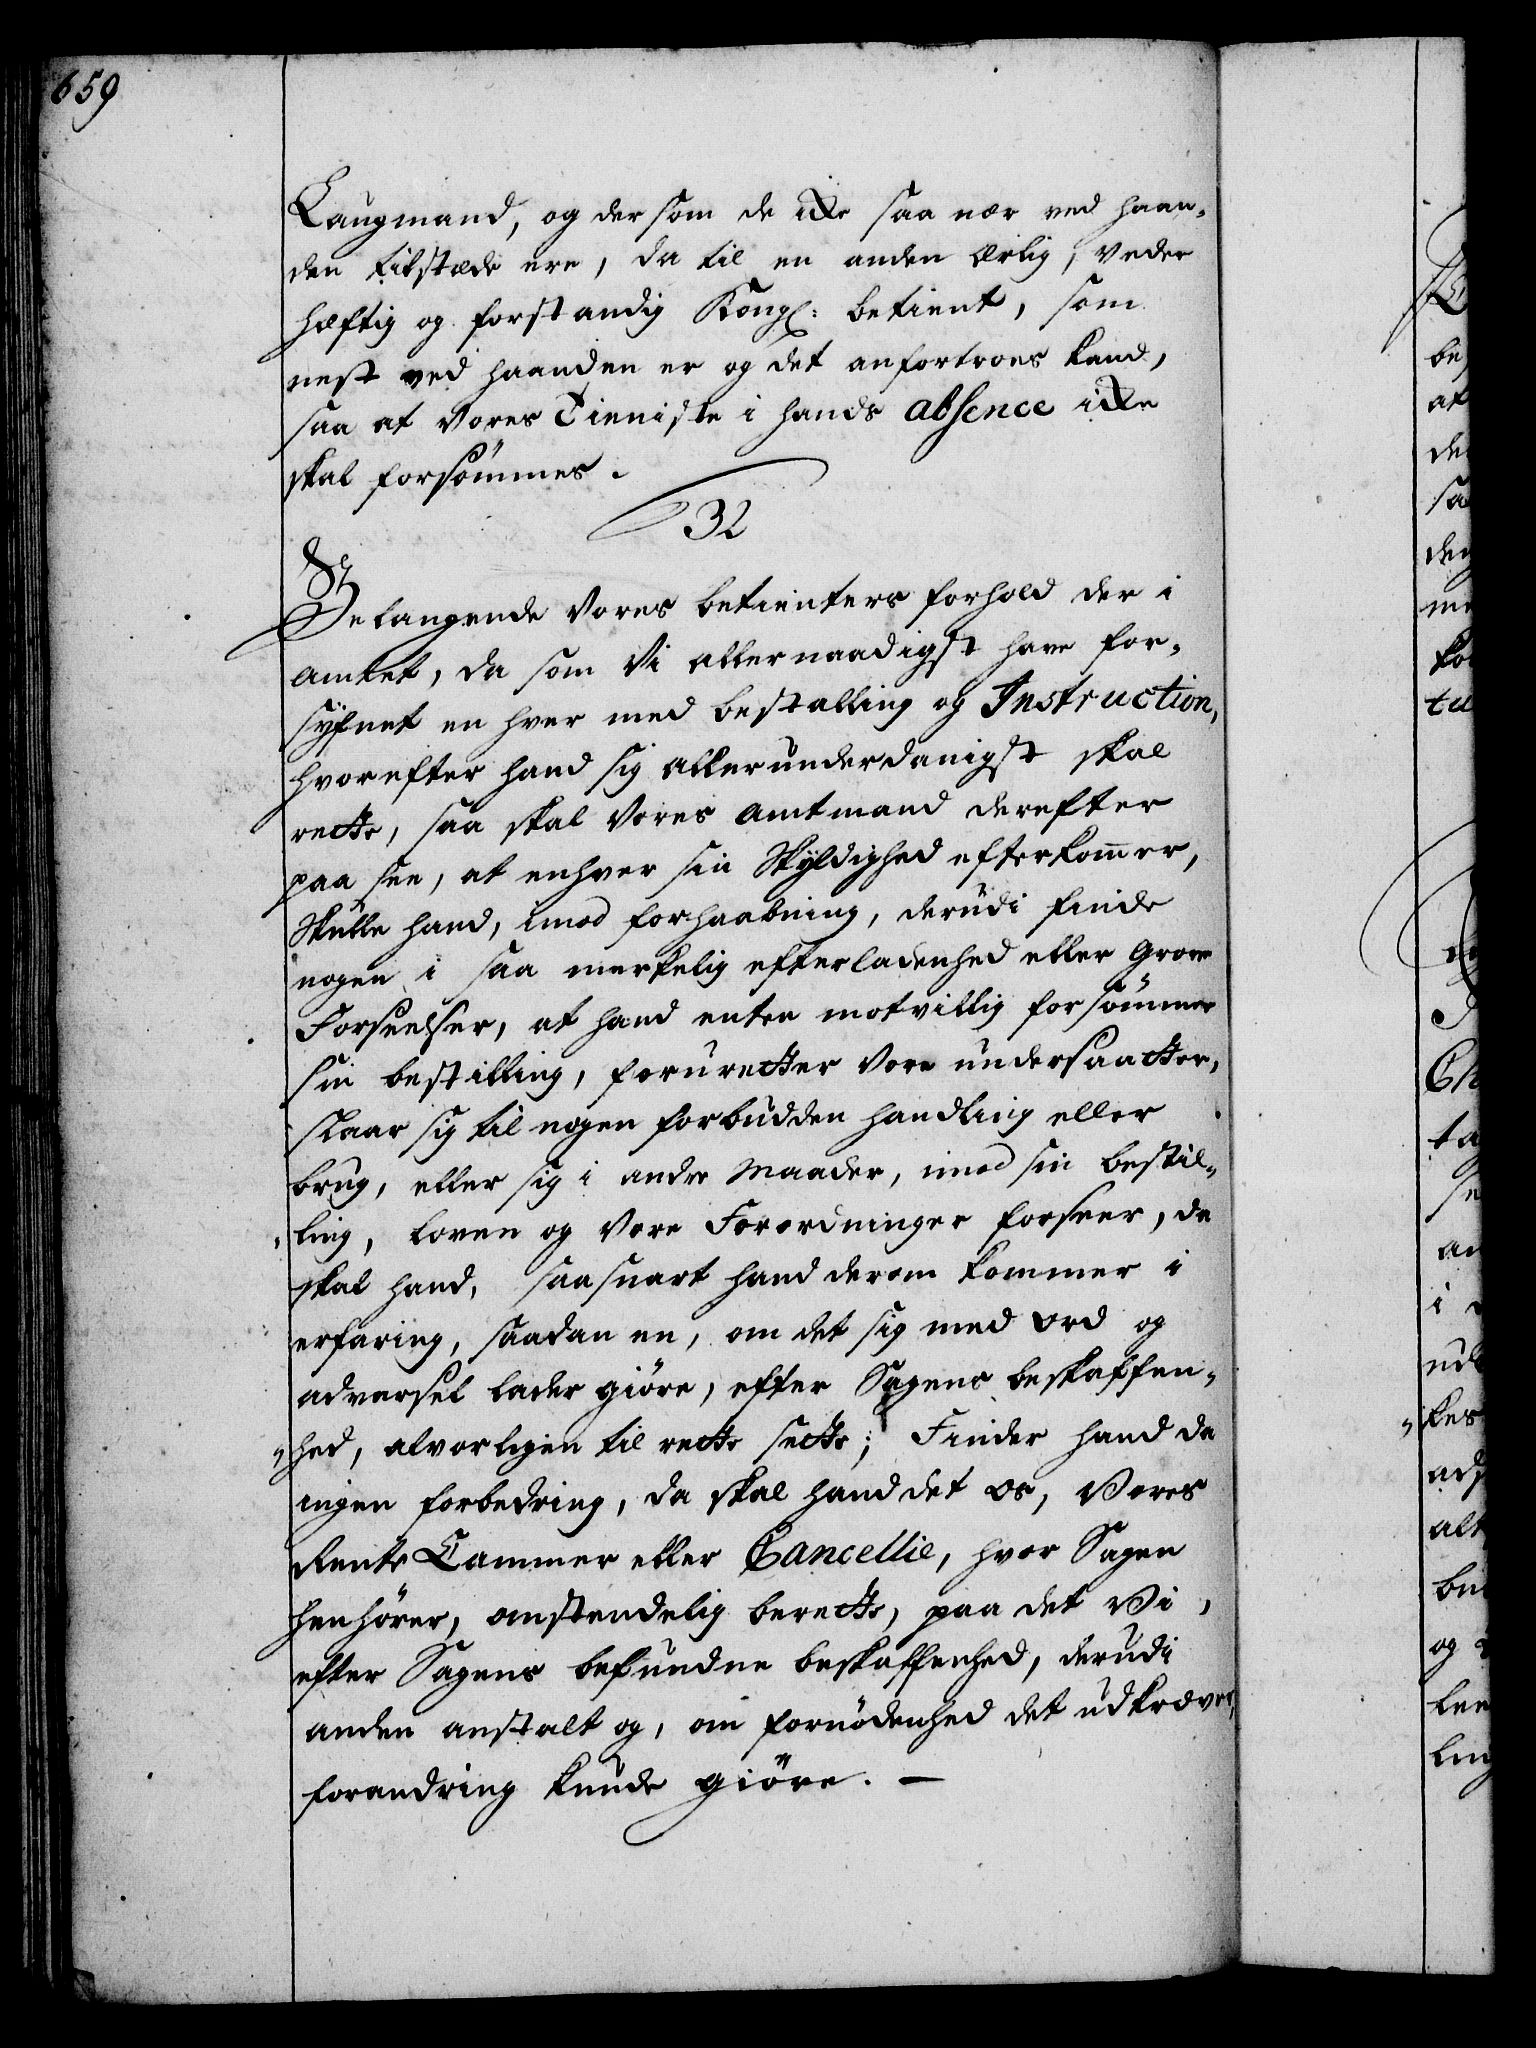 659
Laugmand, og dersom de ikke saa nær ved haan-
den tilstæde ere, da til en anden ærlig, veder
hæftig og forstandig Kongl: betient, som
nest ved haanden er og det anfortroes kand,
saa at Vores Tieniste i hands absence ikke
skal forsömmes.
32
Belangende Vores betienters forhold der i
Amtet, da som Vi allernaadigst have for-
synet en hver med bestalling og Instruction,
hvorefter hand sig allerunderdanigst skal
rette, saa skal Vores Amtmand derefter
paa see, at enhver sin Skyldighed efterkommer,
Skulle hand, imod forhaabning, derudi finde
nogen i saa merkelig efterladenhed eller Grove
Forseelser, at hand enten motvillig forsömmer
sin bestilling, foruretter Vore undersaatter,
slaar sig til nogen forbudden handling eller
brug, eller sig i andre Maader, imod sin bestil-
ling, Loven og Vore Forordninger forseer, da
skal hand, saasnart hand derom kommer i
erfaring, saadan en, om det sig med ord og
advarsel lader giöre, efter Sagens beskaffen-
hed, alvorligen til rette sette; Finder hand da
ingen forbedring, da skal hand det os, Vores
Rente Cammer eller Cancellie, hvor Sagen
henhörer, omstendelig berette, paa det Vi,
efter Sagens befundne beskaffenhed, derudi
anden anstalt og, om fornödenhed det udkræver,
forandring kunde giöre. —